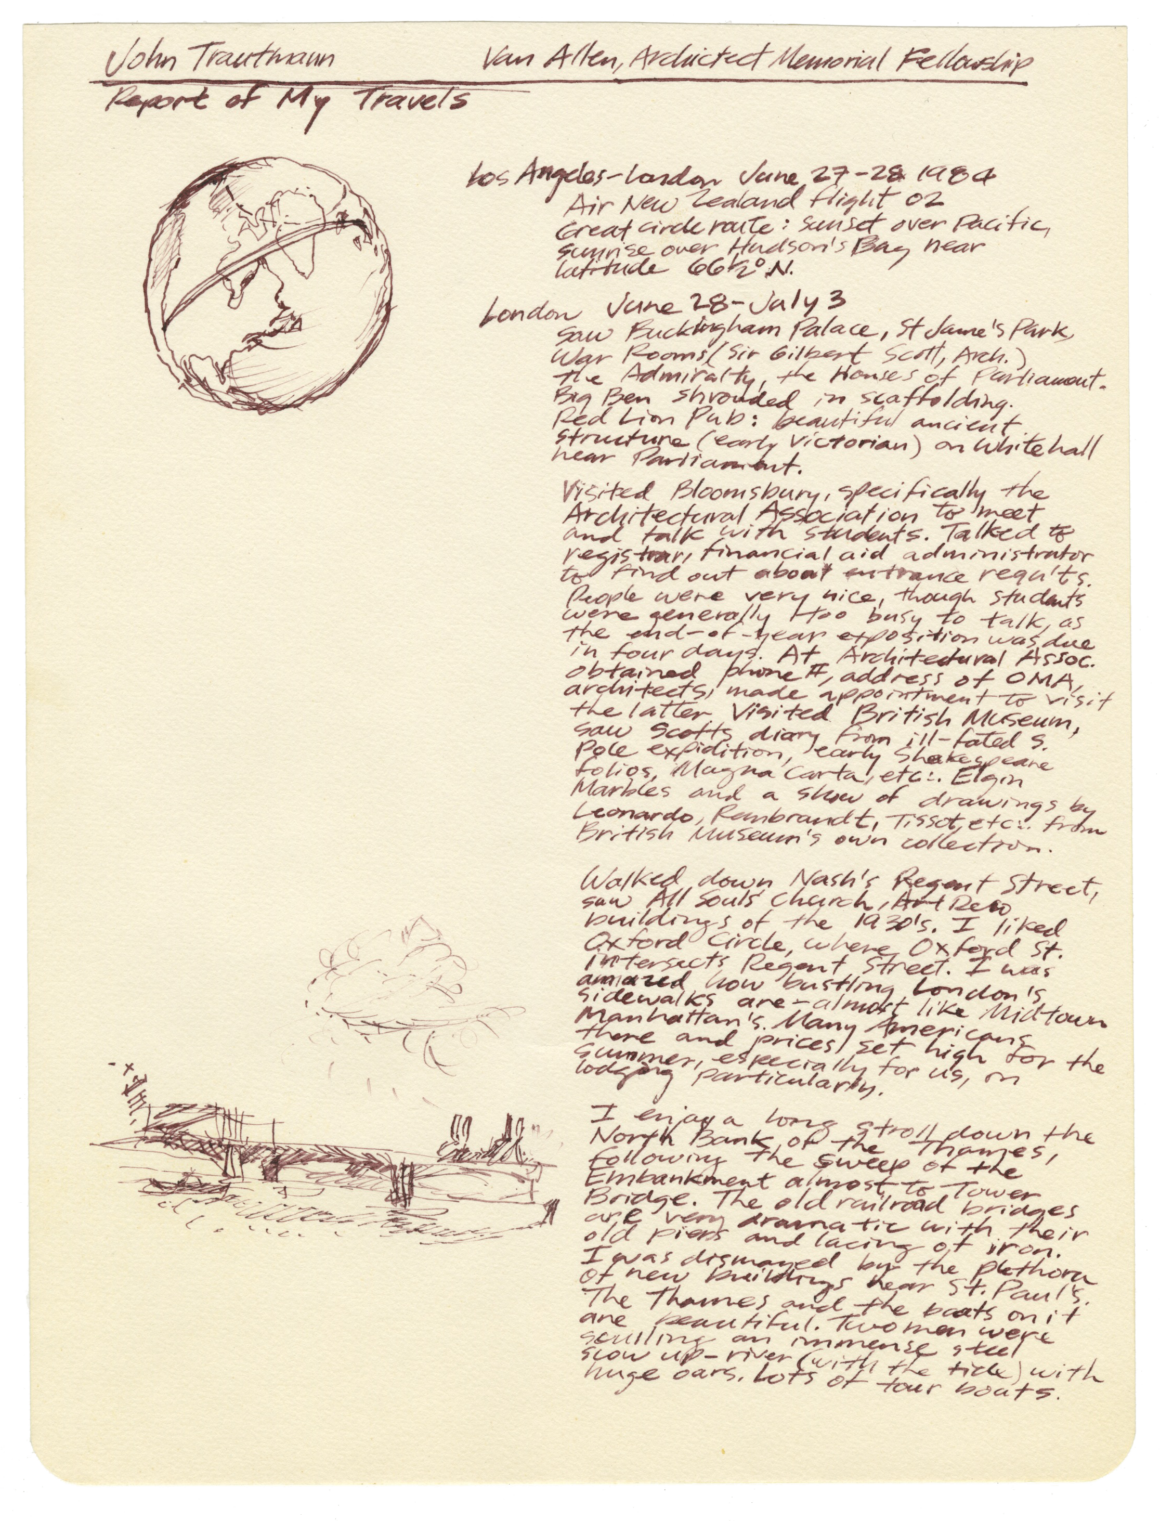 John Trautmann
Van Allen, Architect Memorial Fellowship
Report of My Travels
Los Angeles-London June 27-28 1984
Air New Zealand flight 02
Great circle route: sunset over Pacific,
sunrise over Hudson's Bay near
latitude 66½° N.
London June 28-July 3
Saw Buckingham Palace, St Jame's Park,
War Rooms (Sir Gilbert Scott, Arch.)
the Admiralty, the Houses of Parliament.
Big Ben shrouded in scaffolding.
Red Lion Pub: beautiful ancient
structure (early Victorian) on Whitehall
near Parliament.
Visited Bloomsbury, specifically the
Architectural Association to meet
and talk with students. Talked to
registrar, financial aid administrator
to find out about entrance requ'ts.
People were very nice, though students
were generally too busy to talk, as
the end-of-year exposition was due
in four days. At Architectural Assoc.
obtained phone #, address of OMA,
architects, made appointment to visit
the latter. Visited British Museum,
saw Scotts diary from ill-fated S.
Pole expidition, early Shakespeare
folios, Magna Carta, etc.. Elgin
Marbles and a show of drawings by
Leonardo, Rembrandt, Tissot, etc.. from
British Museum's own collection.
Walked down Nash's Regent Street,
saw All Souls' Church, Art Deco
buildings of the 1930's. I liked
Oxford Circle, where Oxford St.
intersects Regent Street. I was
amazed how bustling London's
sidewalks are - almost like Midtown
Manhattan's. Many Americans
there and prices, set high for the
summer, especially for us, on
lodging particularly.
I enjoy a long stroll down the
North Bank of the Thames,
following the sweep of the
Embankment almost to Tower
Bridge. The old railroad bridges
are very dramatic with their
old piers and lacing of iron.
I was dismayed by the plethora
of new buildings near St. Paul's.
The Thames and the boats on it
are beautiful. Two men were
sculling an immense steel
scow up-river (with the tide) with
huge oars. Lots of tour boats.